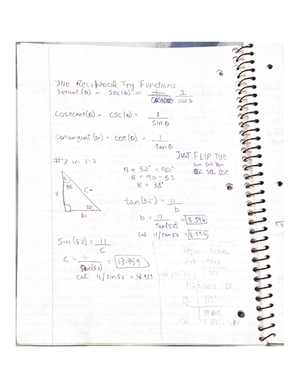 The Reciprocal Trig Functions
Secant(θ) = Sec(θ) = 1 / cos θ
Cosecant(θ) = CSC(θ) = 1 / Sin θ
Cotangent(θ) = COT(θ) = 1 / Tan θ
JUST FLIP THE
Sin Cos Tan
CSC SEC COT
#7 in 1.2
B + 52° = 90°
B = 90 - 52
B = 38°
38
C=
52
tan(52°) = 11 / b
b = 11 / tan(52) = 8.594
Cal 11/tan 52 = 8.594
Sin(52) = 11 / C
C = 11 / Sin(52) = 13.959
Cal 11/sin 52 = 13.959